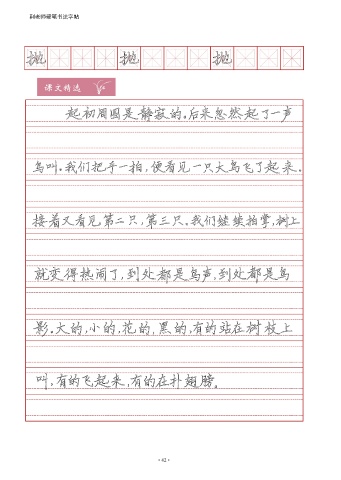 硬笔书法字帖
抛 抛 抛
课文精选
起初周围是静寂的。后来忽然起了一声
鸟叫。我们把手一拍,便看见一只大鸟飞了起来。
接着又看见第二只,第三只。我们继续拍掌,树上
就变得热闹了,到处都是鸟声,到处都是鸟
影。大的,小的,花的,黑的,有的站在树枝上
叫,有的飞起来,有的在扑翅膀。